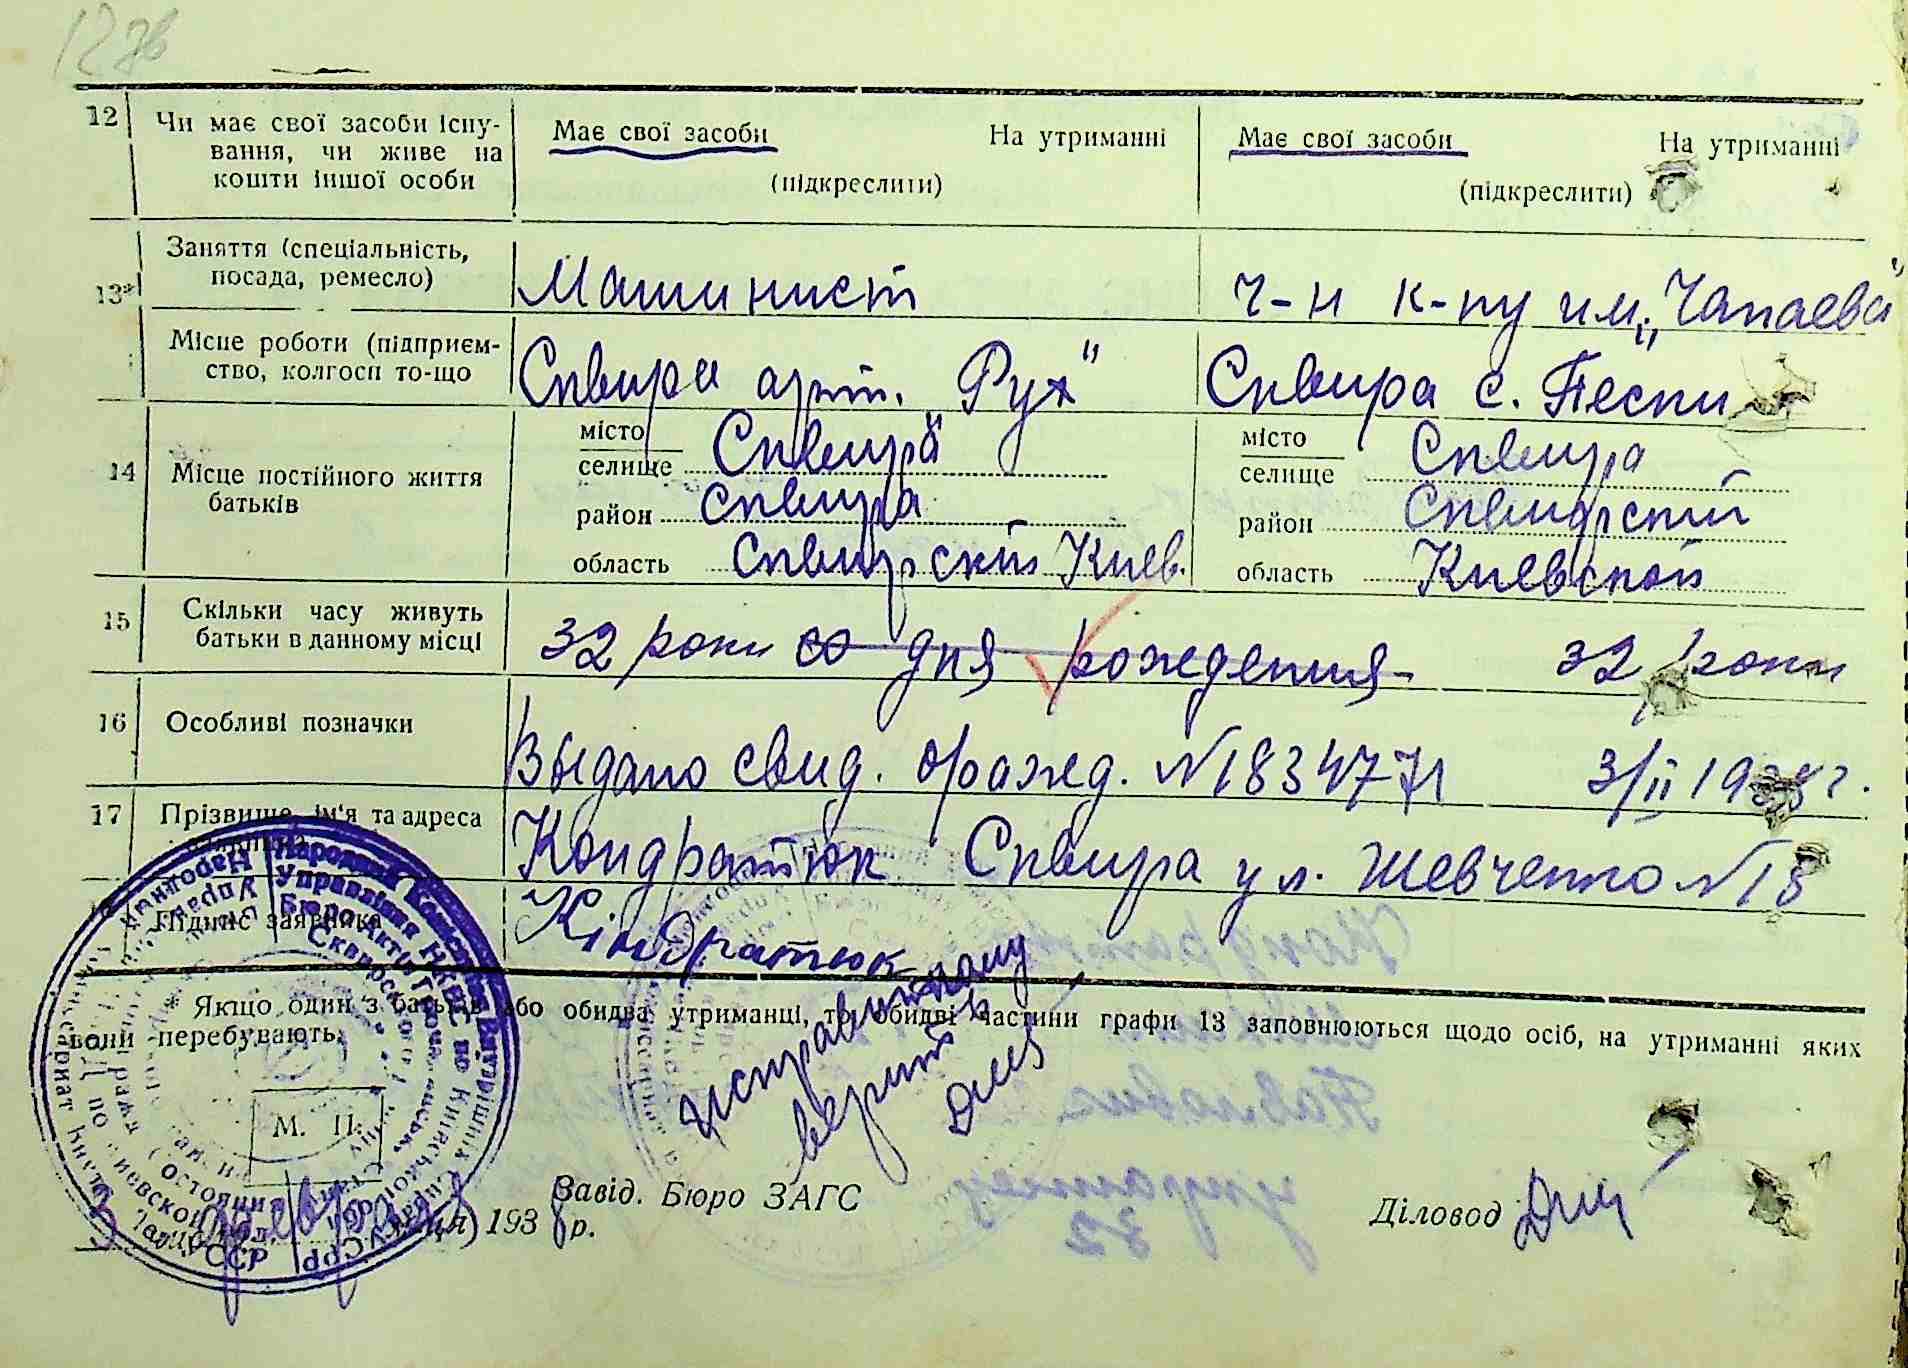 12 зв
12 Чи має свої засоби існу-
вання, чи живе на
кошти іншої особи
Має свої засоби На утриманні
(підкреслити)
Має свої засоби На утриманні
(підкреслити)
13* Заняття (спеціальність,
посада, ремесло)
Машинист
ч-н к-пу им. „Чапаева"
Місце роботи (підприєм-
ство, колгосп то-що
Сквира арт. Рух"
Сквира с. Пески
14 Місце постійного життя
батьків
місто
селище Сквира
район Сквира
область Сквирскій Киев.
місто
селище Сквира
район Сквирский
область Киевской
15 Скільки часу живуть
батьки в данному місці
32 роки со дня рождения 32 роки
16 Особливі позначки
Выдано свид. о рожд. №1834771 3/II 1938 г.
17 Прізвище, ім'я та адреса
заявника
Кондратюк Сквира ул. Шевченко №18
Підпис заявника
Кіндратюк
* Якщо один з батьків або обидва утриманці, то обидві частини графи 13 заповнюються щодо осіб, на утриманні яких
вони перебувають.
исправленному
верить
М. П.
3 февраля 1938 р.
Завід. Бюро ЗАГС
Діловод